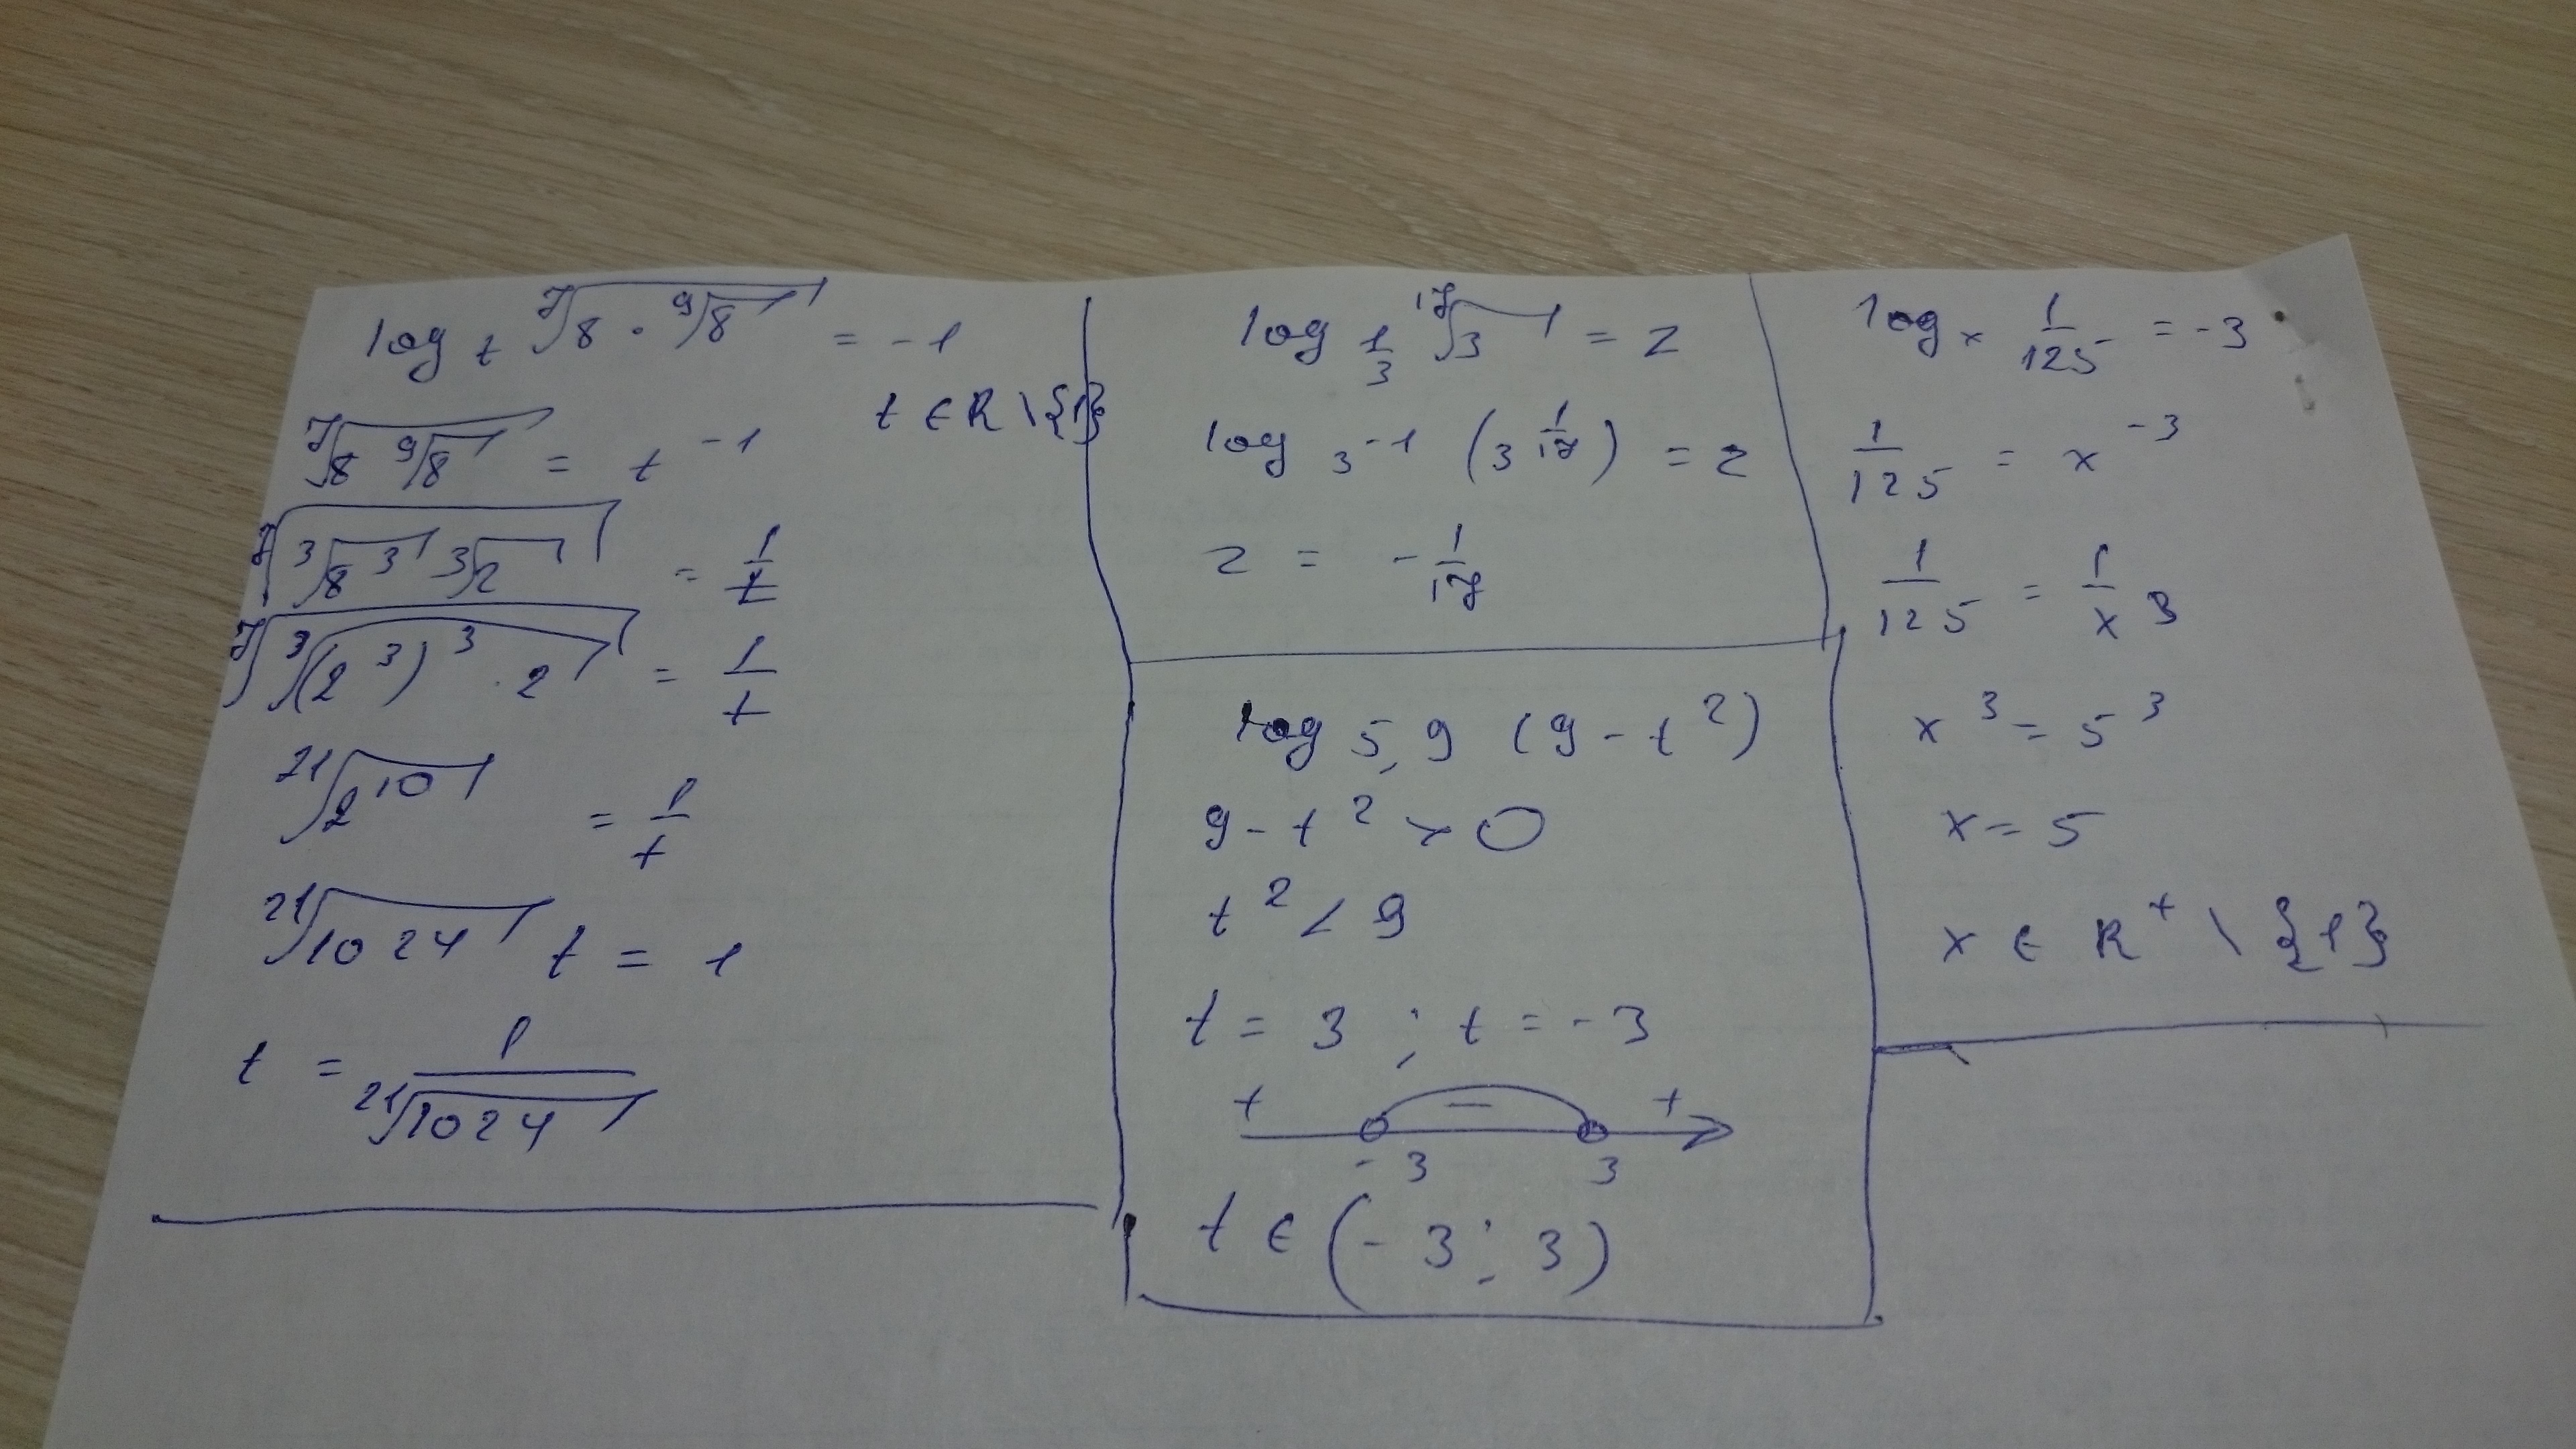 log t ⁷√(8 · ⁹√8) = -1
t ∈ R \ {1}
⁷√(8 ⁹√8) = t⁻¹
⁷√(³√(8³) ³√2) = 1/t
⁷√(³√((2³)³ · 2)) = 1/t
²¹√(2¹⁰) = 1/t
²¹√1024 t = 1
t = 1/²¹√1024
log 1/3 ¹⁷√3 = z
log 3⁻¹ (3^(1/17)) = z
z = -1/17
log 5,9 (9 - t²)
9 - t² > 0
t² < 9
t = 3 ; t = -3
+ − +
-3 3
t ∈ (-3 ; 3)
log x 1/125 = -3
1/125 = x⁻³
1/125 = 1/x³
x³ = 5³
x = 5
x ∈ R⁺ \ {1}